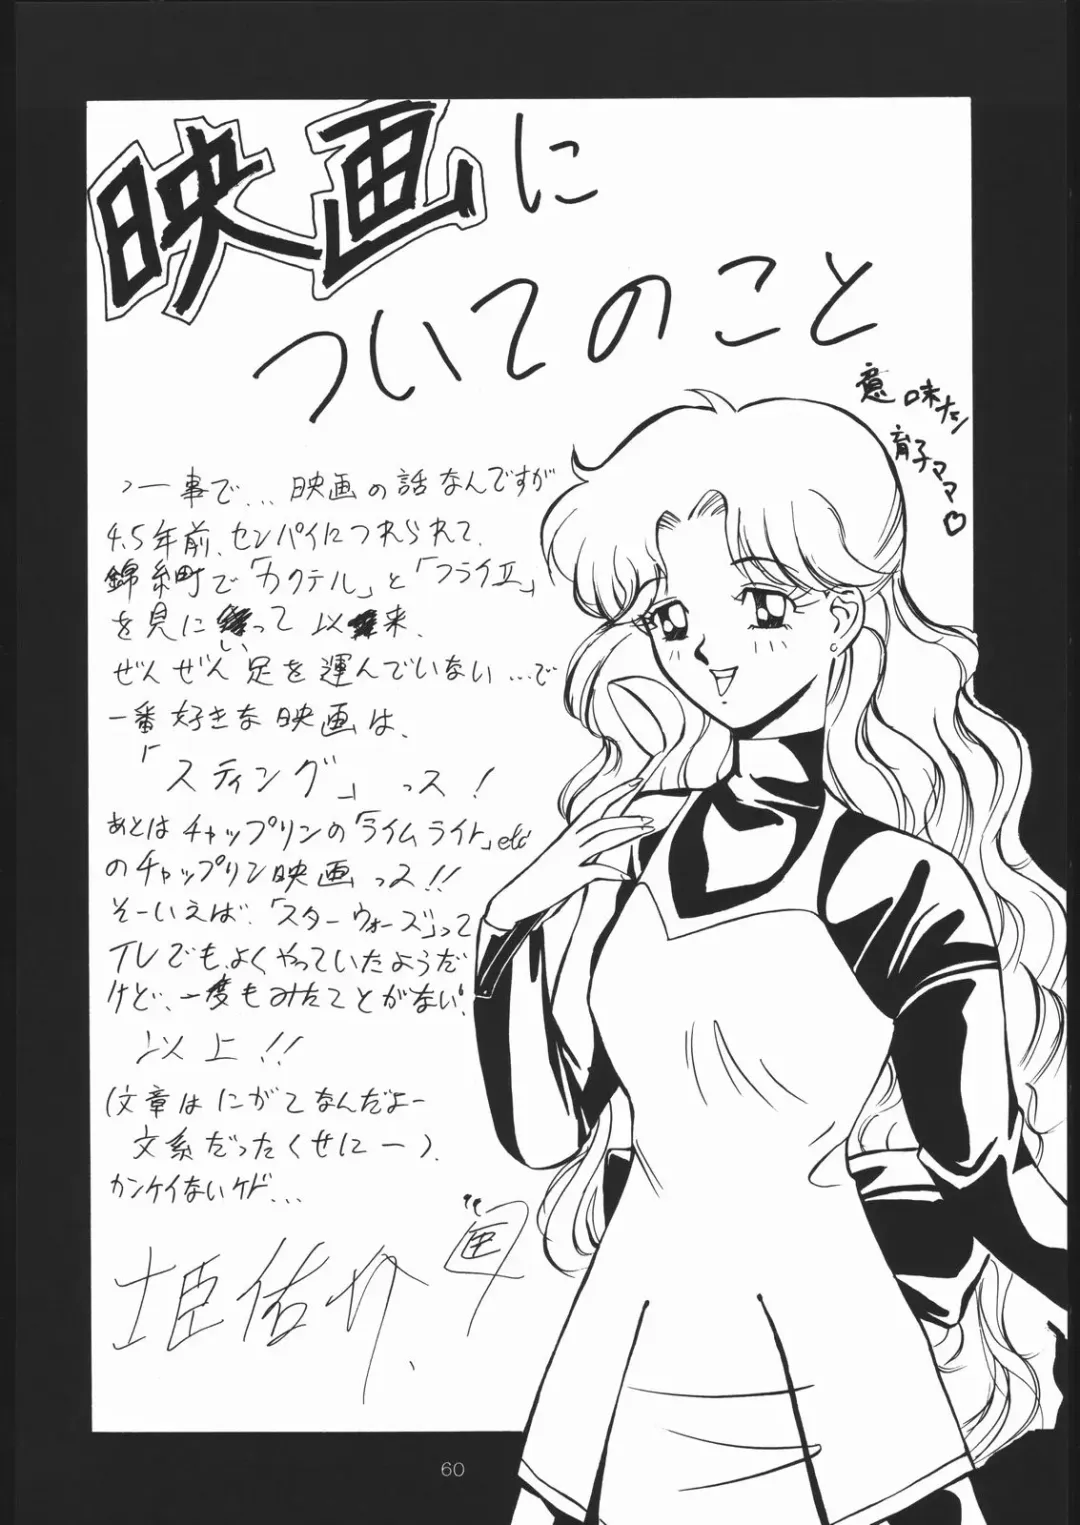 映画に
ついてのこと
意味ナシ
育子ママ♡
つー事で…映画の話なんですが
4.5年前、センパイにつれられて、
錦糸町で「カクテル」と「フライⅡ」
を見に い って 以 来、
ぜんぜん 足を運んでいない…で
一番 好きな 映画は、
「スティング」っス!
あとはチャップリンの「ライムライト」etc
のチャップリン映画っス!!
そーいえば、「スターウォーズ」って
TVでも、よくやっていたようだ
けど、一度もみたことがない!
以上!!
(文章はにがてなんだよー
文系だったくせにー)
カンケイないケド…
姫 佑
60